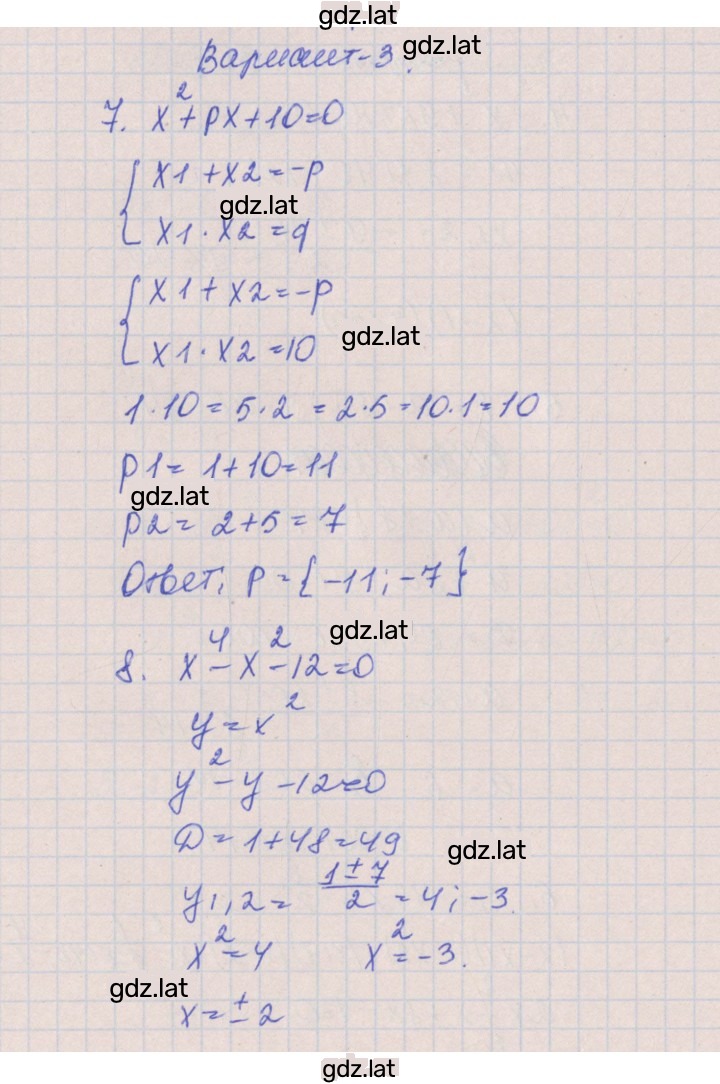 gdz.lat
Вариант-3.
gdz.lat
7. x² + px + 10 = 0
{ x1 + x2 = -p
gdz.lat
x1 · x2 = q
{ x1 + x2 = -p
gdz.lat
x1 · x2 = 10
1 · 10 = 5 · 2 = 2 · 5 = 10 · 1 = 10
p1 = 1 + 10 = 11
gdz.lat
p2 = 2 + 5 = 7
Ответ: p = {-11; -7}
gdz.lat
8. x⁴ - x² - 12 = 0
y = x²
y² - y - 12 = 0
D = 1 + 48 = 49
gdz.lat
y1,2 = (1 ± 7)/2 = 4; -3
x² = 4 x² = -3.
gdz.lat
x = ± 2
gdz.lat